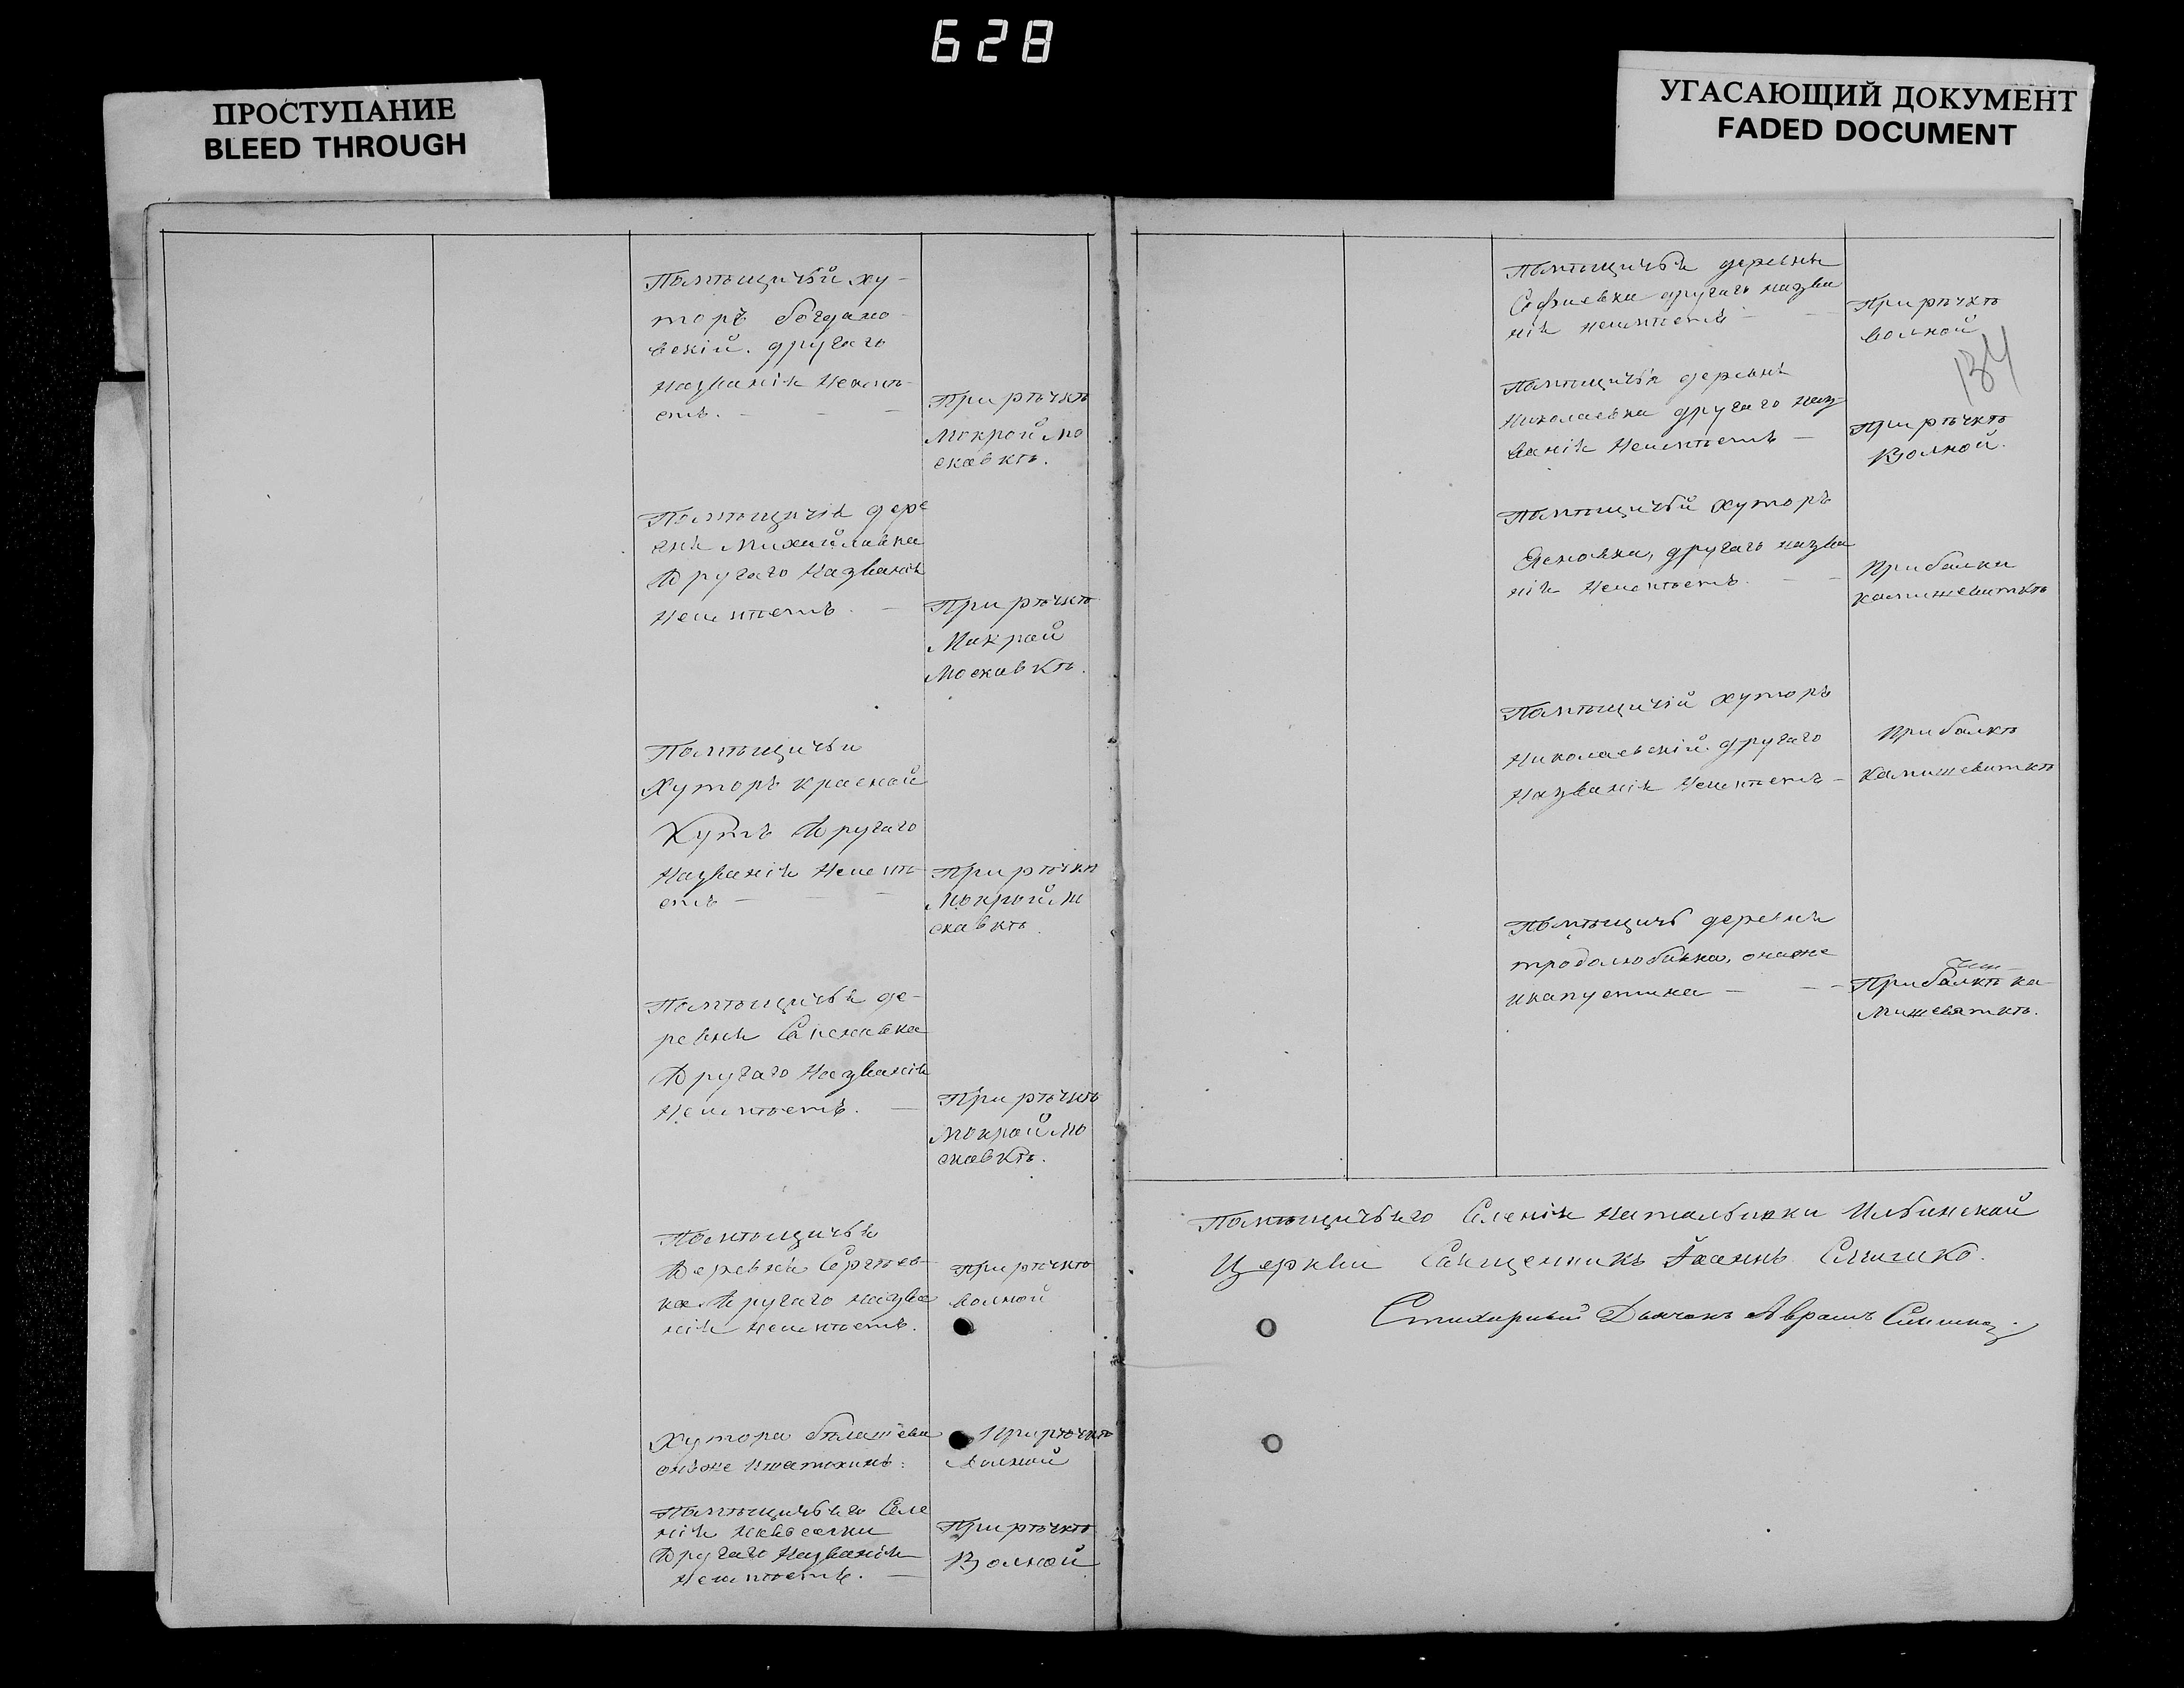 628
ПРОСТУПАНИЕ
BLEED THROUGH
УГАСАЮЩИЙ ДОКУМЕНТ
FADED DOCUMENT
Помѣщичьй ху-
торъ богдано-
вскій. другаго
Названія Неимѣ-
етъ.
При рѣчкѣ
Мокрой Мо
скавкѣ.
Помѣщичія дере
внѣ Михайлавка
Другаго Названія
Неимѣетъ.
При рѣчкѣ
Макрай
Москавкѣ.
Помѣщичьи
Хуторъ Красной
Кутъ Другаго
Названія Неимѣ-
етъ
При рѣчкѣ
Мокрой Мо
скавкѣ.
Помѣщичья де-
ревня
Другаго Названія
Неимѣетъ.
При рѣчкѣ
Мокрай Мо
скавкѣ.
Помѣщичья
Деревня Сергѣев-
ка Другаго Назва
нія Неимѣетъ.
При рѣчкѣ
волной
Хутора
онъже
При рѣчкѣ
Волной
Помѣщичьяго Селе
нія
Другаго Названія
Неимѣетъ.
При рѣчкѣ
Волной
Помѣщичья деревня
Софиевка другаго назва
нія неимѣетъ
При рѣчкѣ
волной
134
Помѣщичья деревня
Николаевка другаго наз-
ванія Неимѣетъ
При рѣчкѣ
Волной.
Помѣщичьй хуторъ
другаго назва
нія Неимѣетъ.
При балки
камишеваткѣ
Помѣщичій хуторъ
Николаевскій другаго
Названія Неимѣетъ
При балкѣ
Камишеваткѣ
Помѣщичь деревня
тродолюбавка, онаже
икапустина
При балкѣ ка-
мишеваткѣ.
Помѣщичьяго Селенія Натальивки Ильинской
Церкви Священникъ Іоаннъ
Стихарный Дьячокъ Аврамъ